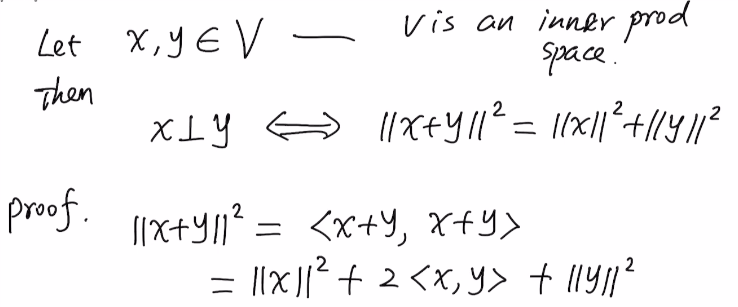 Let x, y ∈ V — V is an inner prod space.
Then
x ⊥ y ⟺ ||x+y||² = ||x||² + ||y||²
proof. ||x+y||² = <x+y, x+y>
= ||x||² + 2<x, y> + ||y||²